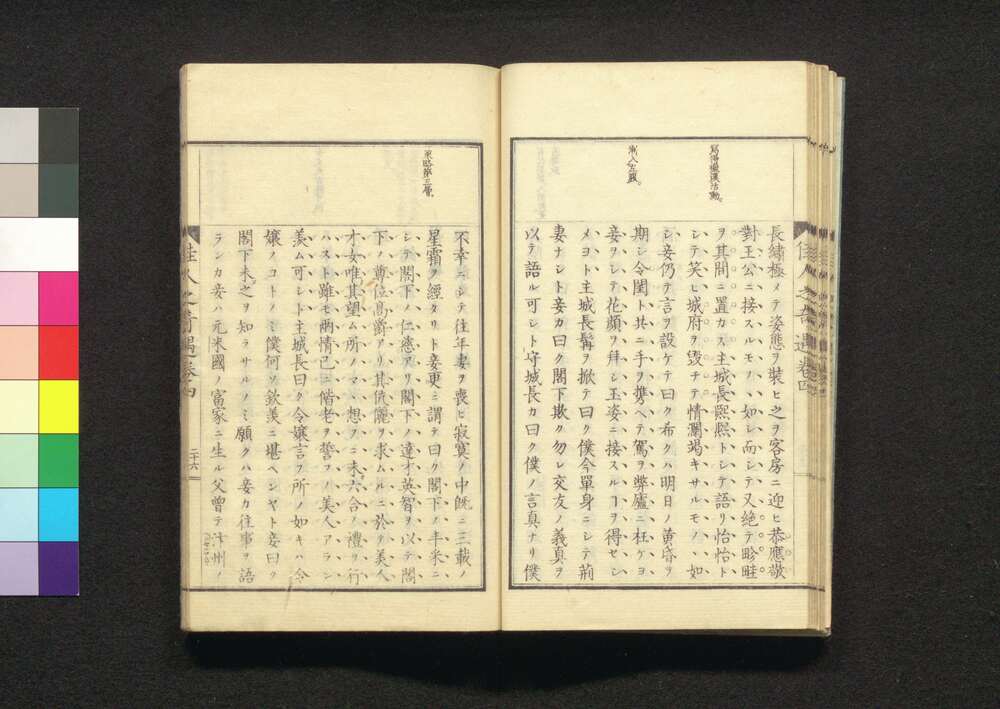 寫得極漢活動。
漸入左戲。
長繡極メテ姿態ヲ裝ヒ之ヲ客房ニ迎ヒ恭應敬
對王公ニ接スルモノヽ如シ而シテ又絶テ畛畦
ヲ其間ニ置カス主城長熙熙トシテ語リ怡怡ト
シテ笑ヒ城府ヲ毀チテ情瀾竭キサルモノヽ如
シ妾仍テ言ヲ設ケテ曰ク希クハ明日ノ黄昏ヲ
期シ令閨ト共ニ手ヲ携ヘテ駕ヲ弊廬ニ枉ケヨ
妾ヲシテ花顔ヲ拜シ玉姿ニ接スルヿヲ得セシ
メヨト主城長髯ヲ掀テ曰ク僕今單身ニシテ荊
妻ナシト妾カ曰ク閣下欺ク勿レ交友ノ義真ヲ
以テ語ル可シト守城長カ曰ク僕ノ言真ナリ僕
佳人之奇遇 卷四
策略第三層。
不幸ニシテ往年妻ヲ喪ヒ寂寞ノ中既ニ三載ノ
星霜ヲ經タリト妾更ニ謂テ曰ク閣下ノ丰采ニ
シテ閣下ノ仁慈アリ閣下ノ達才英智ヲ以テ閣
下ノ尊位高爵アリ其伉儷ヲ求ムルニ於テ美人
才女唯其望ム所ノマヽ想フニ未タ六合ノ禮ヲ行
ハスト雖モ兩情已ニ偕老ヲ誓フノ美人アラン
羨ム可シト主城長曰ク令嬢言フ所ノ如キハ令
嬢ノコトノミ僕何ソ欽羨ニ堪ヘンヤト妾曰ク
閣下未タ之ヲ知ラサルノミ願クハ妾カ往事ヲ語
ランカ妾ハ元米國ノ富家ニ生ル父曾テ汴州ノ
佳人之奇遇 卷四 二十六